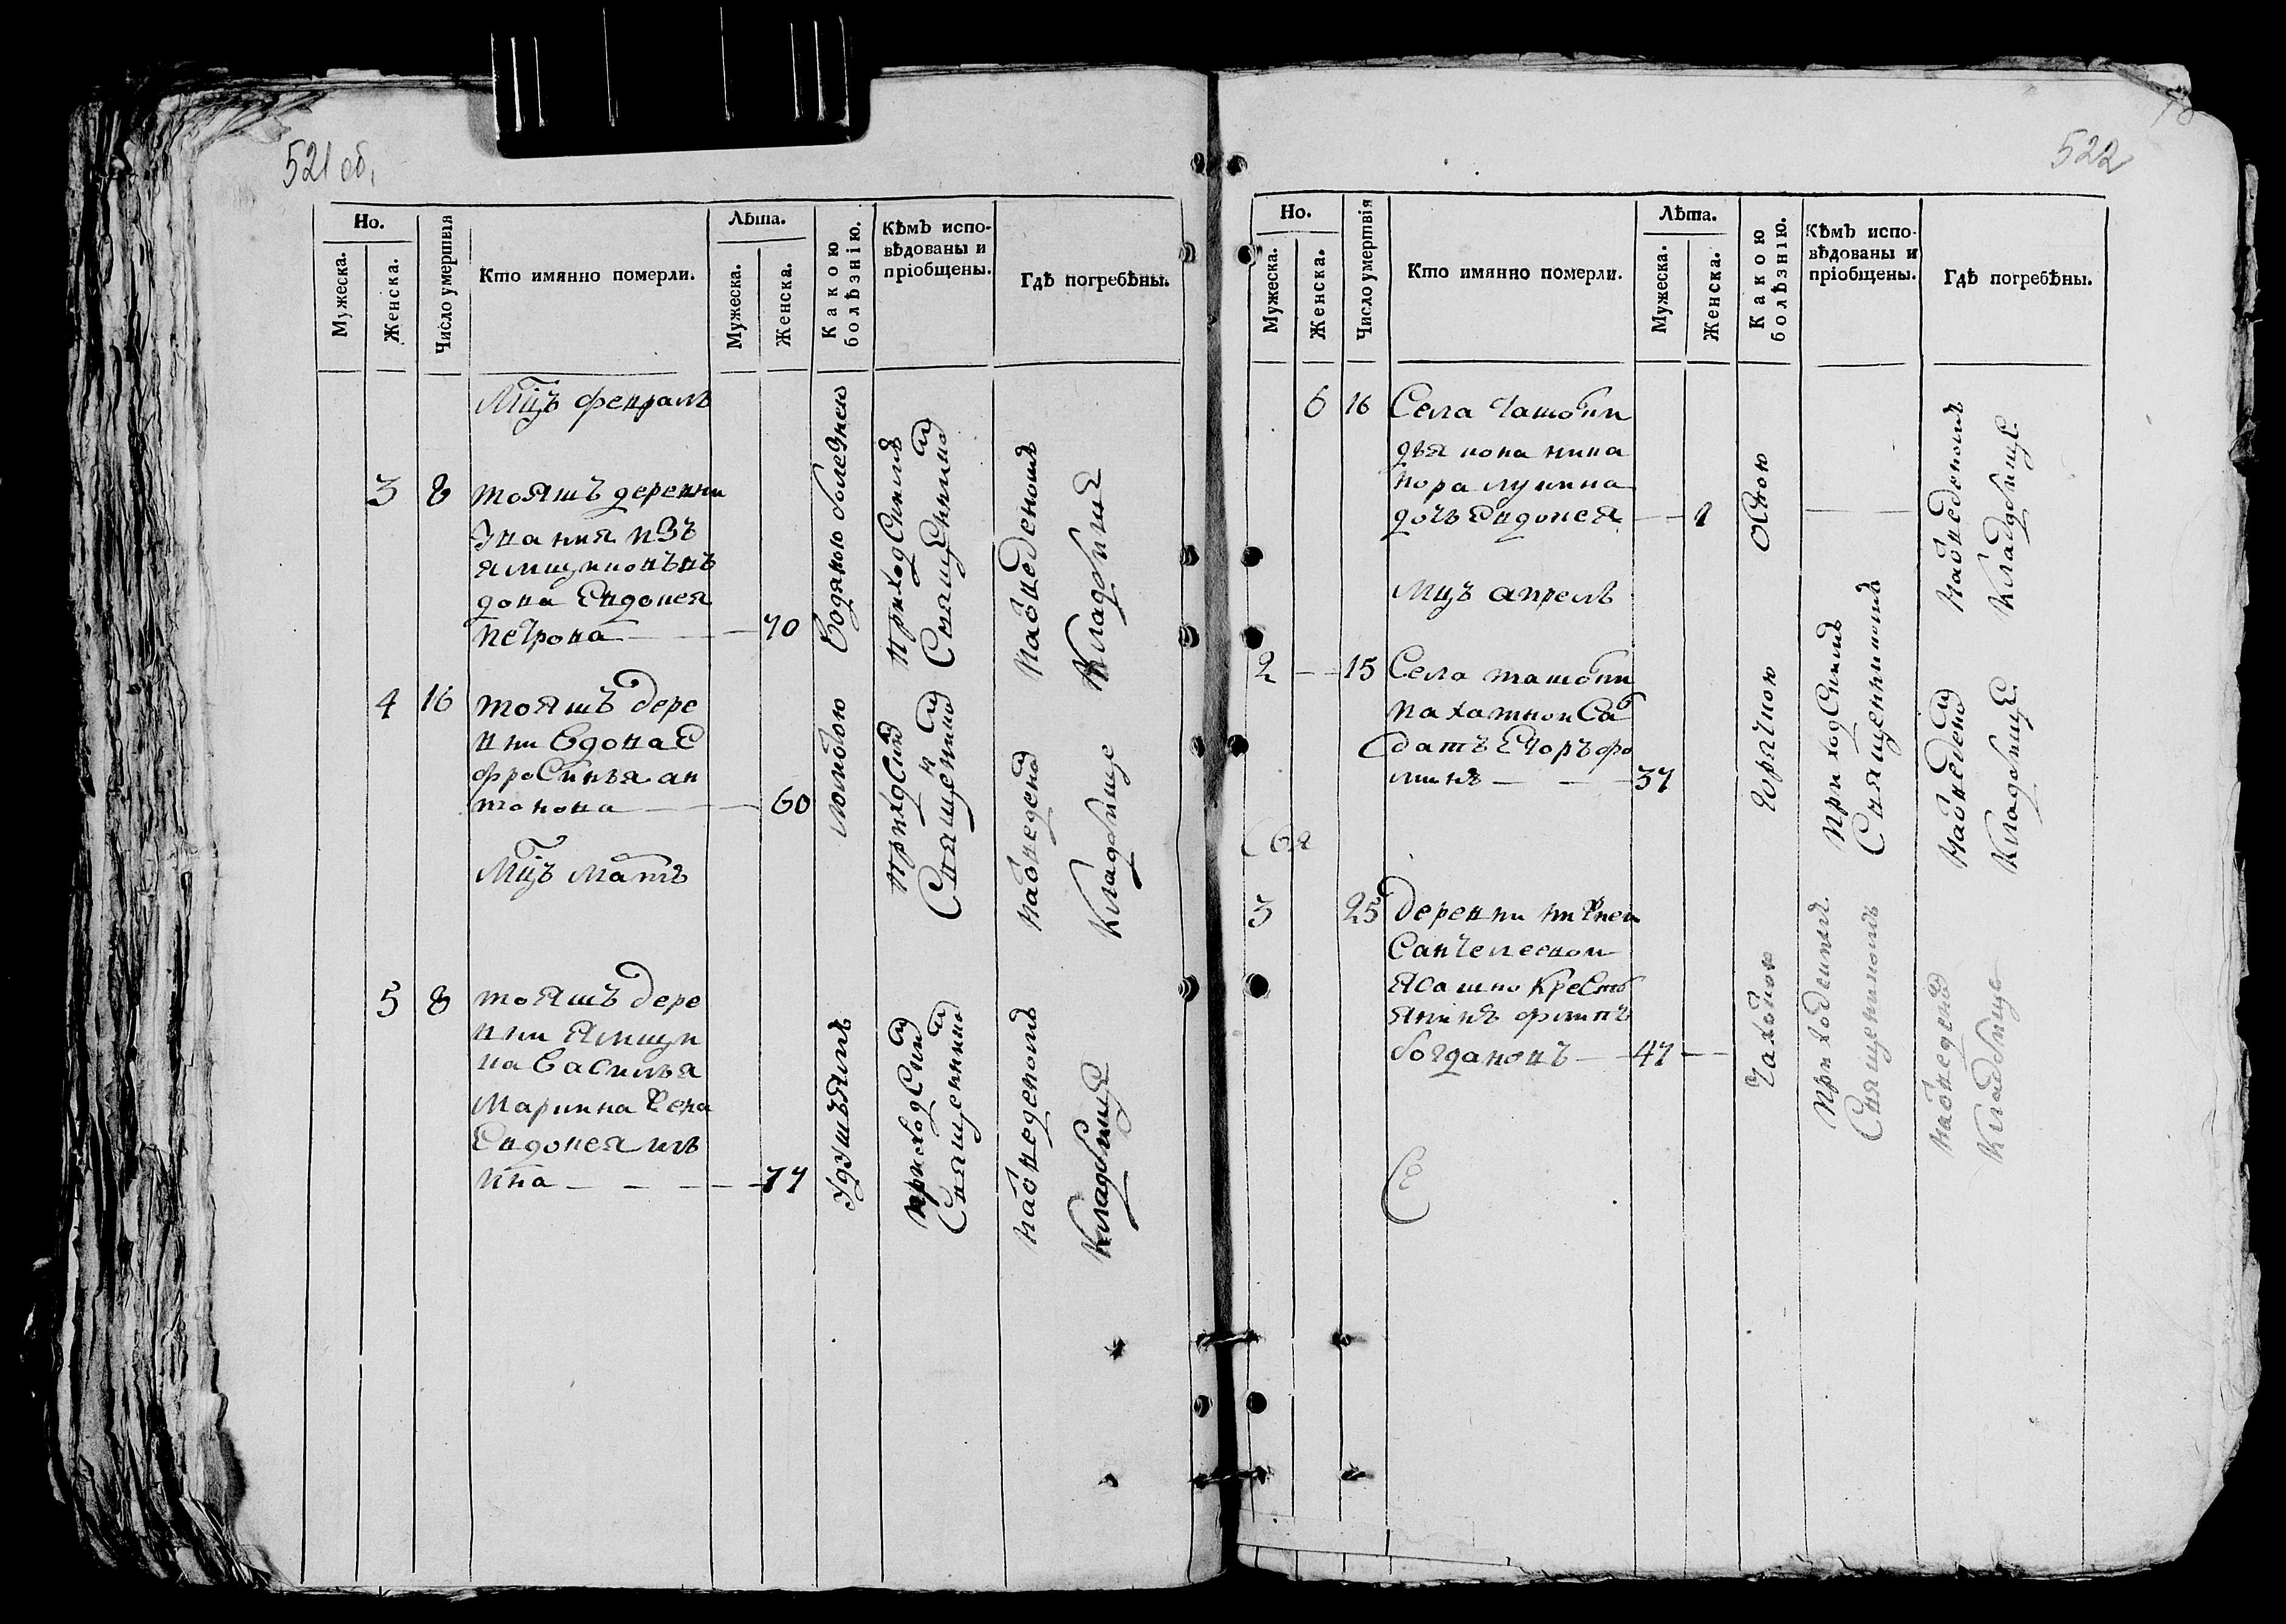 521 об.
Но.
Мужеска.
Женска.
Число умертвія
Кто имянно померли.
Лѣта.
Мужеска.
Женска.
Какою болѣзнію.
Кѣмъ испо-
вѣдованы и
пріобщены.
Гдѣ погребѣны.
Мцъ февраль
3 8 тояжъ деревни
звания изъ
ямщиковъ в
дова Евдокея
петрова 70
водяною болезнею
приходскимъ
священникомъ
на отведеномъ
кладбище
4 16 тояжъ дере
вни вдова Е
фросинья ан
тонова 60
ломотою
приходскимъ
священникомъ
на отведеномъ
кладбище
Мцъ мартъ
5 8 тояжъ дере
вни ямщи
ка василья
маркина жена
Евдокея иль
ина 77
удушьямъ
приходскимъ
священникомъ
на отведеномъ
кладбище
522
Но.
Мужеска.
Женска.
Число умертвія
Кто имянно померли.
Лѣта.
Мужеска.
Женска.
Какою болѣзнію.
Кѣмъ испо-
вѣдованы и
пріобщены.
Гдѣ погребѣны.
6 16 Села ташобки
дьякона
дочь Евдокея 1
оспою
на отведеномъ
кладбище
мцъ апрель
2 15 Села ташобки
пахатной сол
датъ Егоръ фо
минъ 37
горячкою
приходскимъ
священникомъ
на отведеномъ
кладбище
3 25 деревни нижней
Санчелеевой
ясашно крестъ
янинъ филипъ
богдановъ 47
чахоткою
приходскимъ
священникомъ
на отведеномъ
кладбище